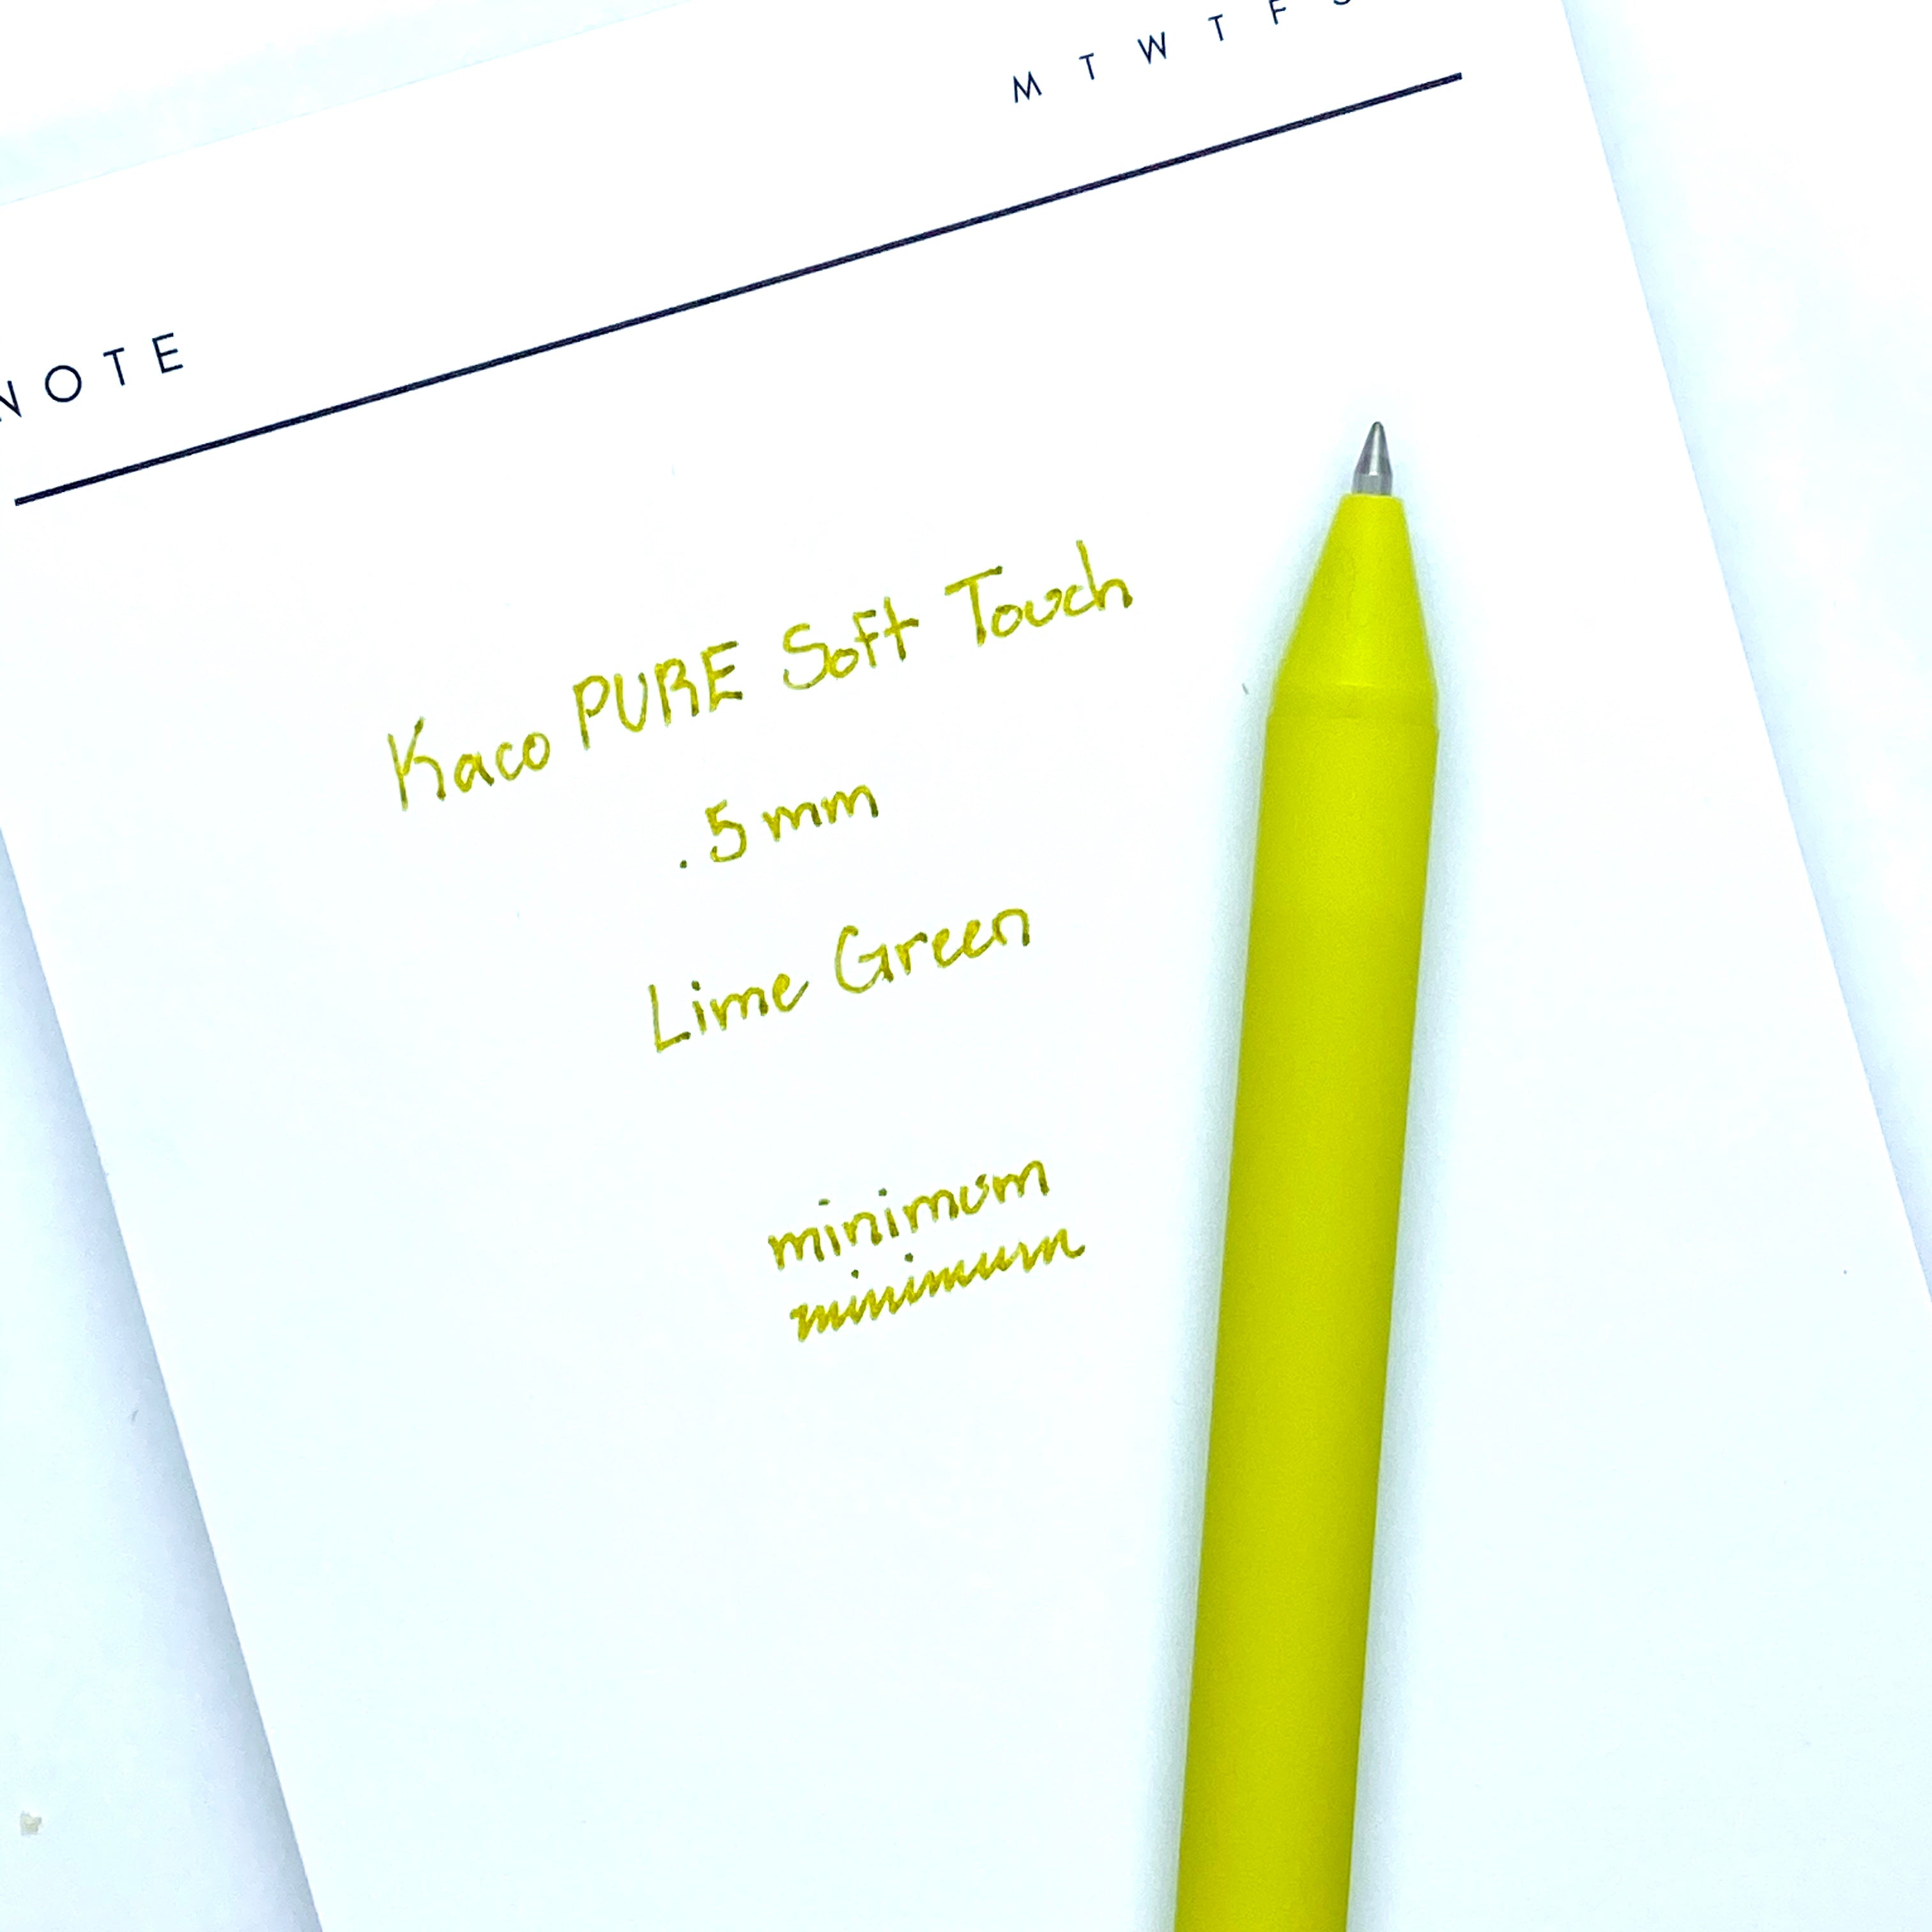 M T W T F S
NOTE
Kaco PURE Soft Touch
.5mm
Lime Green
minimum
minimum